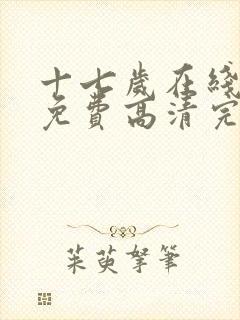 十七岁在线
免费高清完
茱萸拏筆